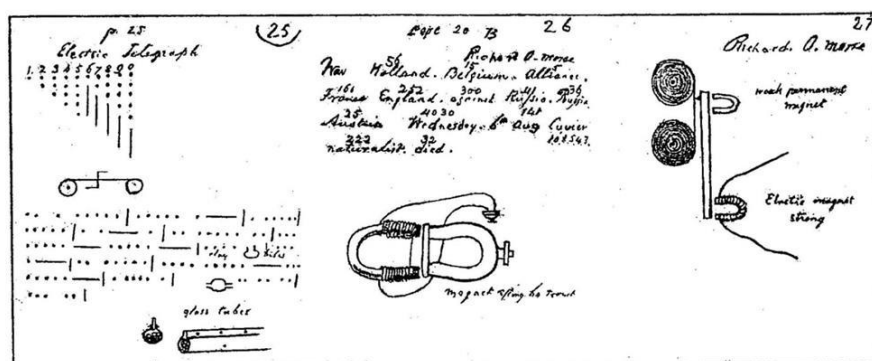 p. 25
25
Electric Telegraph
1 2 3 4 5 6 7 8 9 0
clay
glass tubes
26
56 15 5
War Holland. Belgium. Alliance.
161 252 300 41 36
France England. against Russia. Prussia
25 4030 141
Austria Wednesday. 6th Aug Cuvier
223 32 108543
naturalist. died.
magnet
27
Richard. O. Morse
weak permanent
magnet
Electric magnet
strong